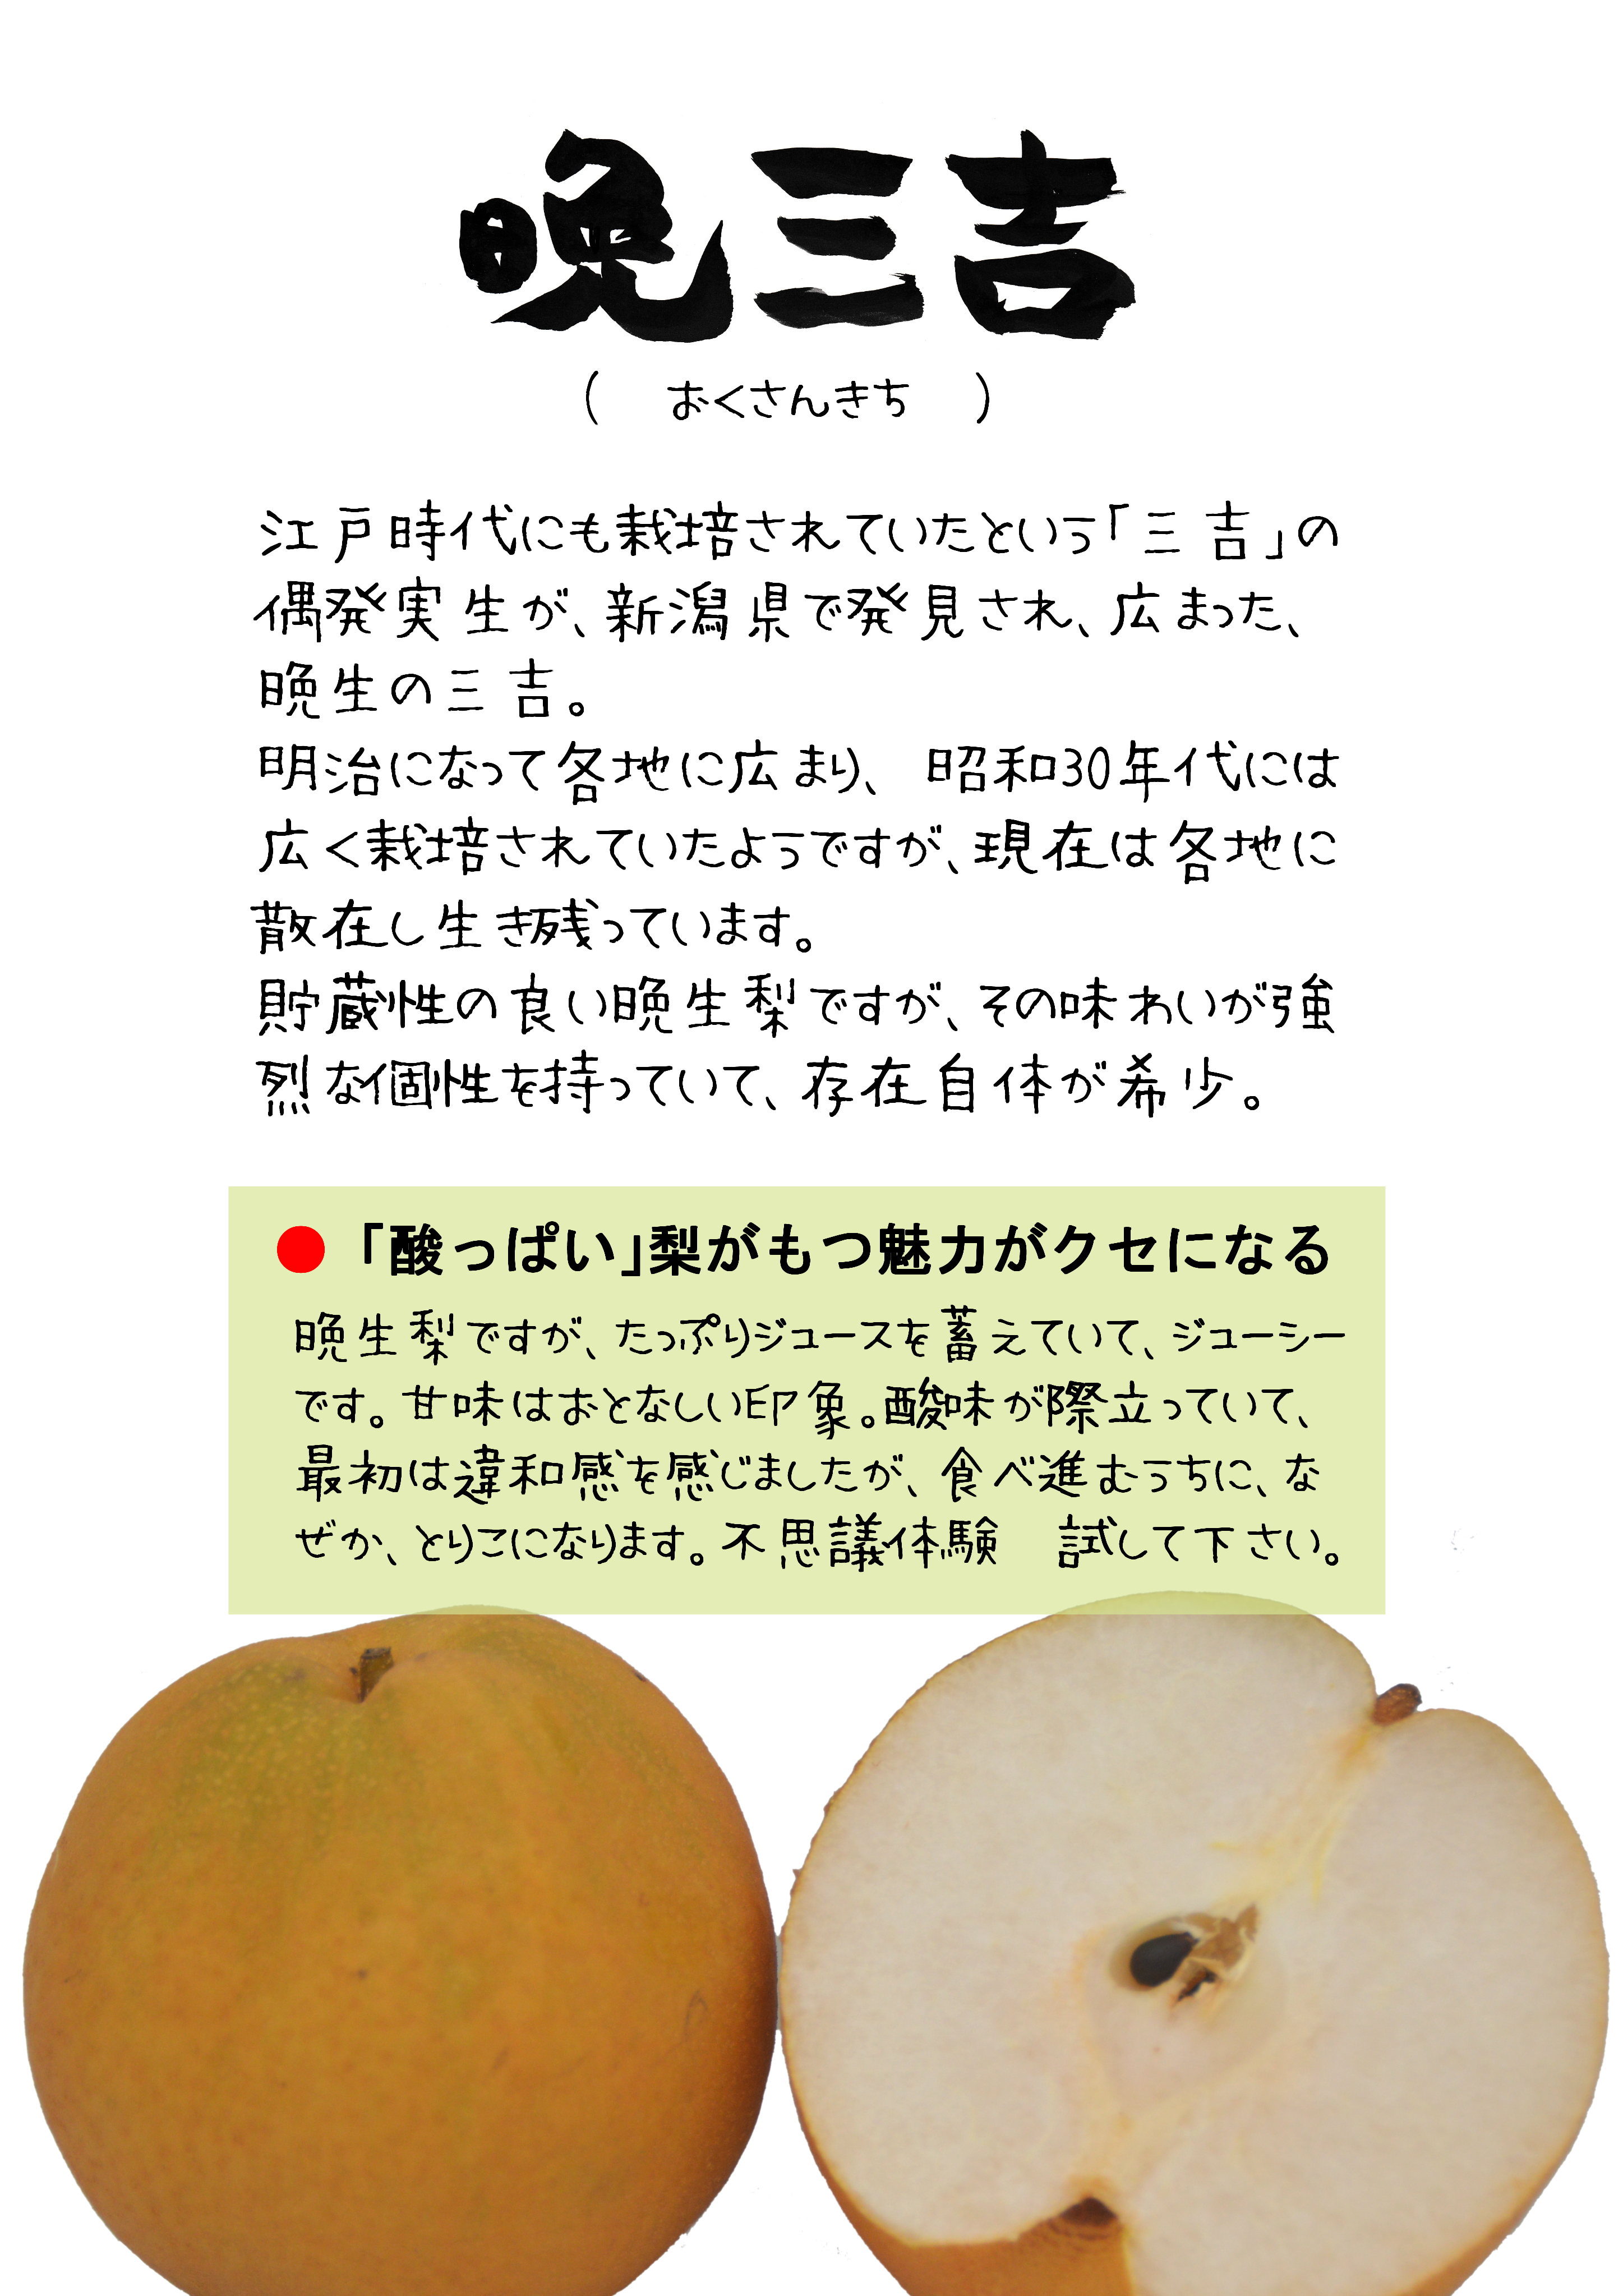 晩三吉
(　おくさんきち　)
江戸時代にも栽培されていたという「三吉」の
偶発実生が、新潟県で発見され、広まった、
晩生の三吉。
明治になって各地に広まり、昭和30年代には
広く栽培されていたようですが、現在は各地に
散在し生き残っています。
貯蔵性の良い晩生梨ですが、その味わいが強
烈な個性を持っていて、存在自体が希少。
●「酸っぱい」梨がもつ魅力がクセになる
晩生梨ですが、たっぷりジュースを蓄えていて、ジューシー
です。甘味はおとなしい印象。酸味が際立っていて、
最初は違和感を感じましたが、食べ進むうちに、な
ぜか、とりこになります。不思議体験　試して下さい。